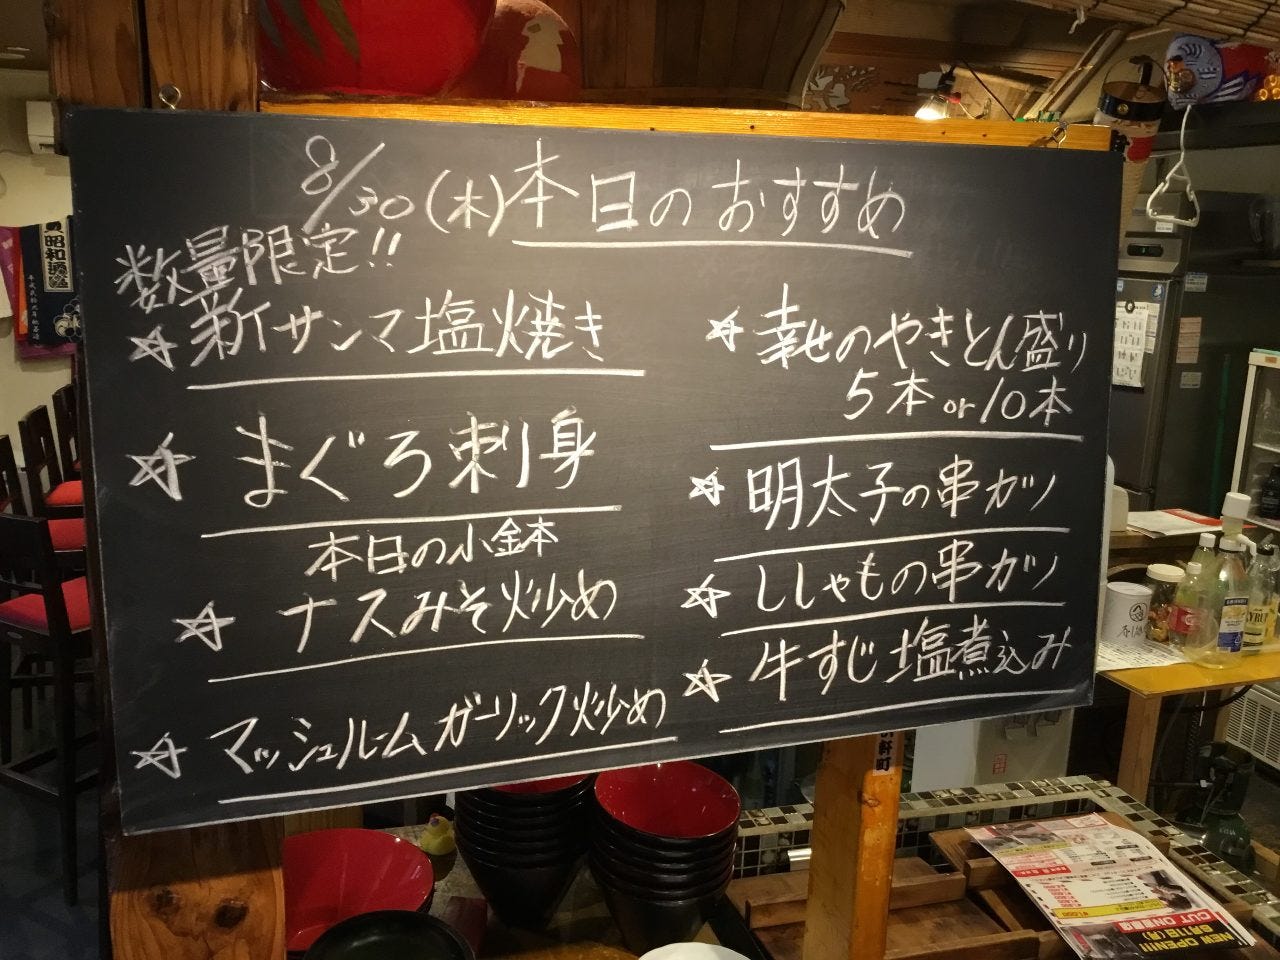 8/30(木)本日のおすすめ
数量限定!!
☆新サンマ塩焼き
☆まぐろ刺身
本日の小鉢
☆ナスみそ炒め
☆マッシュルームガーリック炒め
☆幸せのやきとん盛り
5本or10本
☆明太子の串カツ
☆ししゃもの串カツ
☆牛すじ塩煮込み
昭和酒場
軒町
NEW OPEN!!!
CUT ON